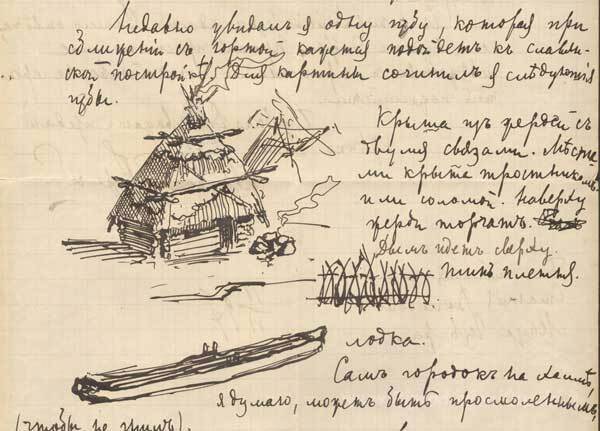 Недавно увидалъ я одну избу, которая при
сближеніи съ кажется подойдетъ къ славян-
ской постройкѣ. Для картины сочинилъ я слѣдующія
избы.
Крыша изъ жердей съ
двумя связами. Мѣста-
ми крыта тростникомъ
или соломой. Наверху
жерди торчатъ.
Дымъ идетъ сверху.
Типъ плетня.
лодка.
Самъ городокъ на холмѣ,
я думаю, можетъ быть просмоленнымъ,
(чтобы не гнилъ).